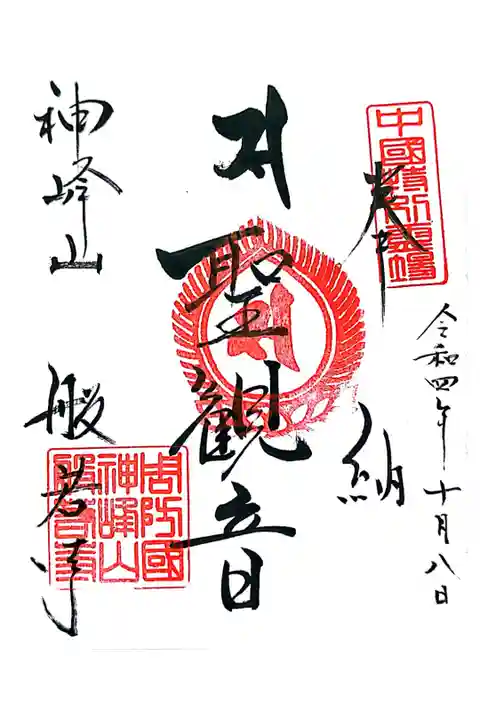 中國特別霊場
奉納
令和四年十月八日
聖観音
神峰山
般若寺
周防國
神峰山
般若寺